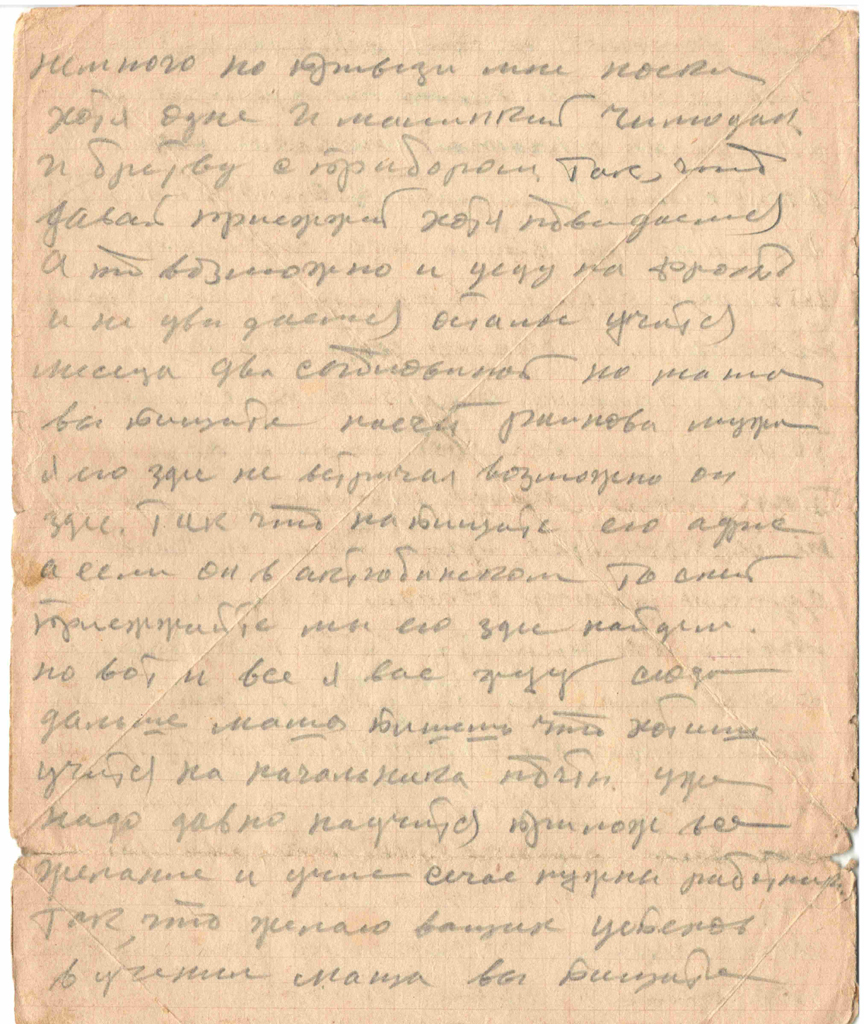 немного но привези мне носки
хотя одне и малинкий чимодан
и бритву с прибором, так, что
давай приежжай хотя повидаемся
А то возможно и уеду на фронт
и не увидаемся осталос учится
месеца два с половиной но маша
вы пишите насчет мужа
я его зде не встричал возможно он
зде. Так что напишите его адрис
а если он в актюбинском то с ней
приежжайте мы его зде найдем.
но вот и все я вас жду сюда
дальше маша пишешь что хотишь
учится на начальника почты. уже
надо давно научится прилож все
желание и учис сечас нужны работники
так что желаю ваших успехов
в учении маша вы пишите